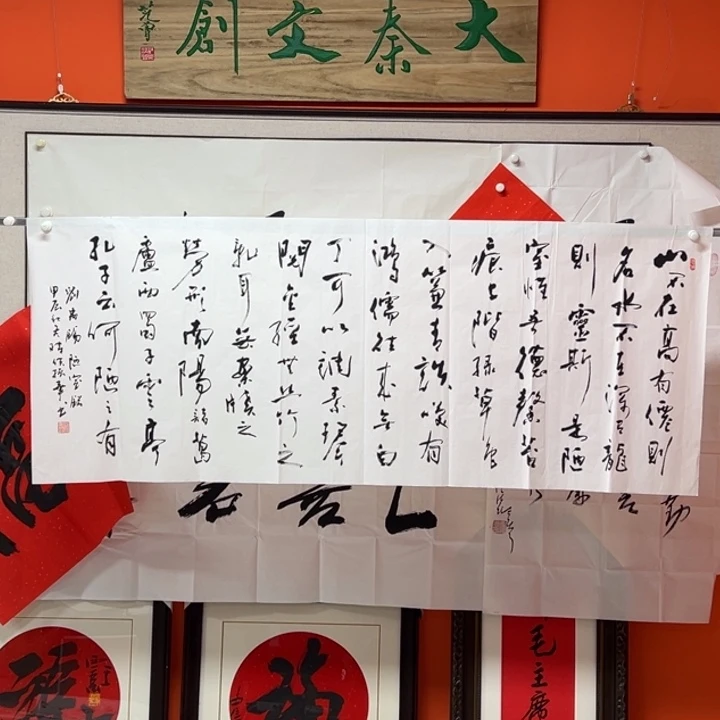 大秦文創
山不在高有僊則
名水不在深有龍
則靈斯是陋
室惟吾德馨苔
痕上階綠草色
入簾青談笑有
鴻儒往來無白
丁可以調素琴
閱金經無絲竹之
亂耳無案牘之
勞形南陽諸葛
廬西蜀子雲亭
孔子云何陋之有
劉禹錫陋室銘
甲辰
毛主席